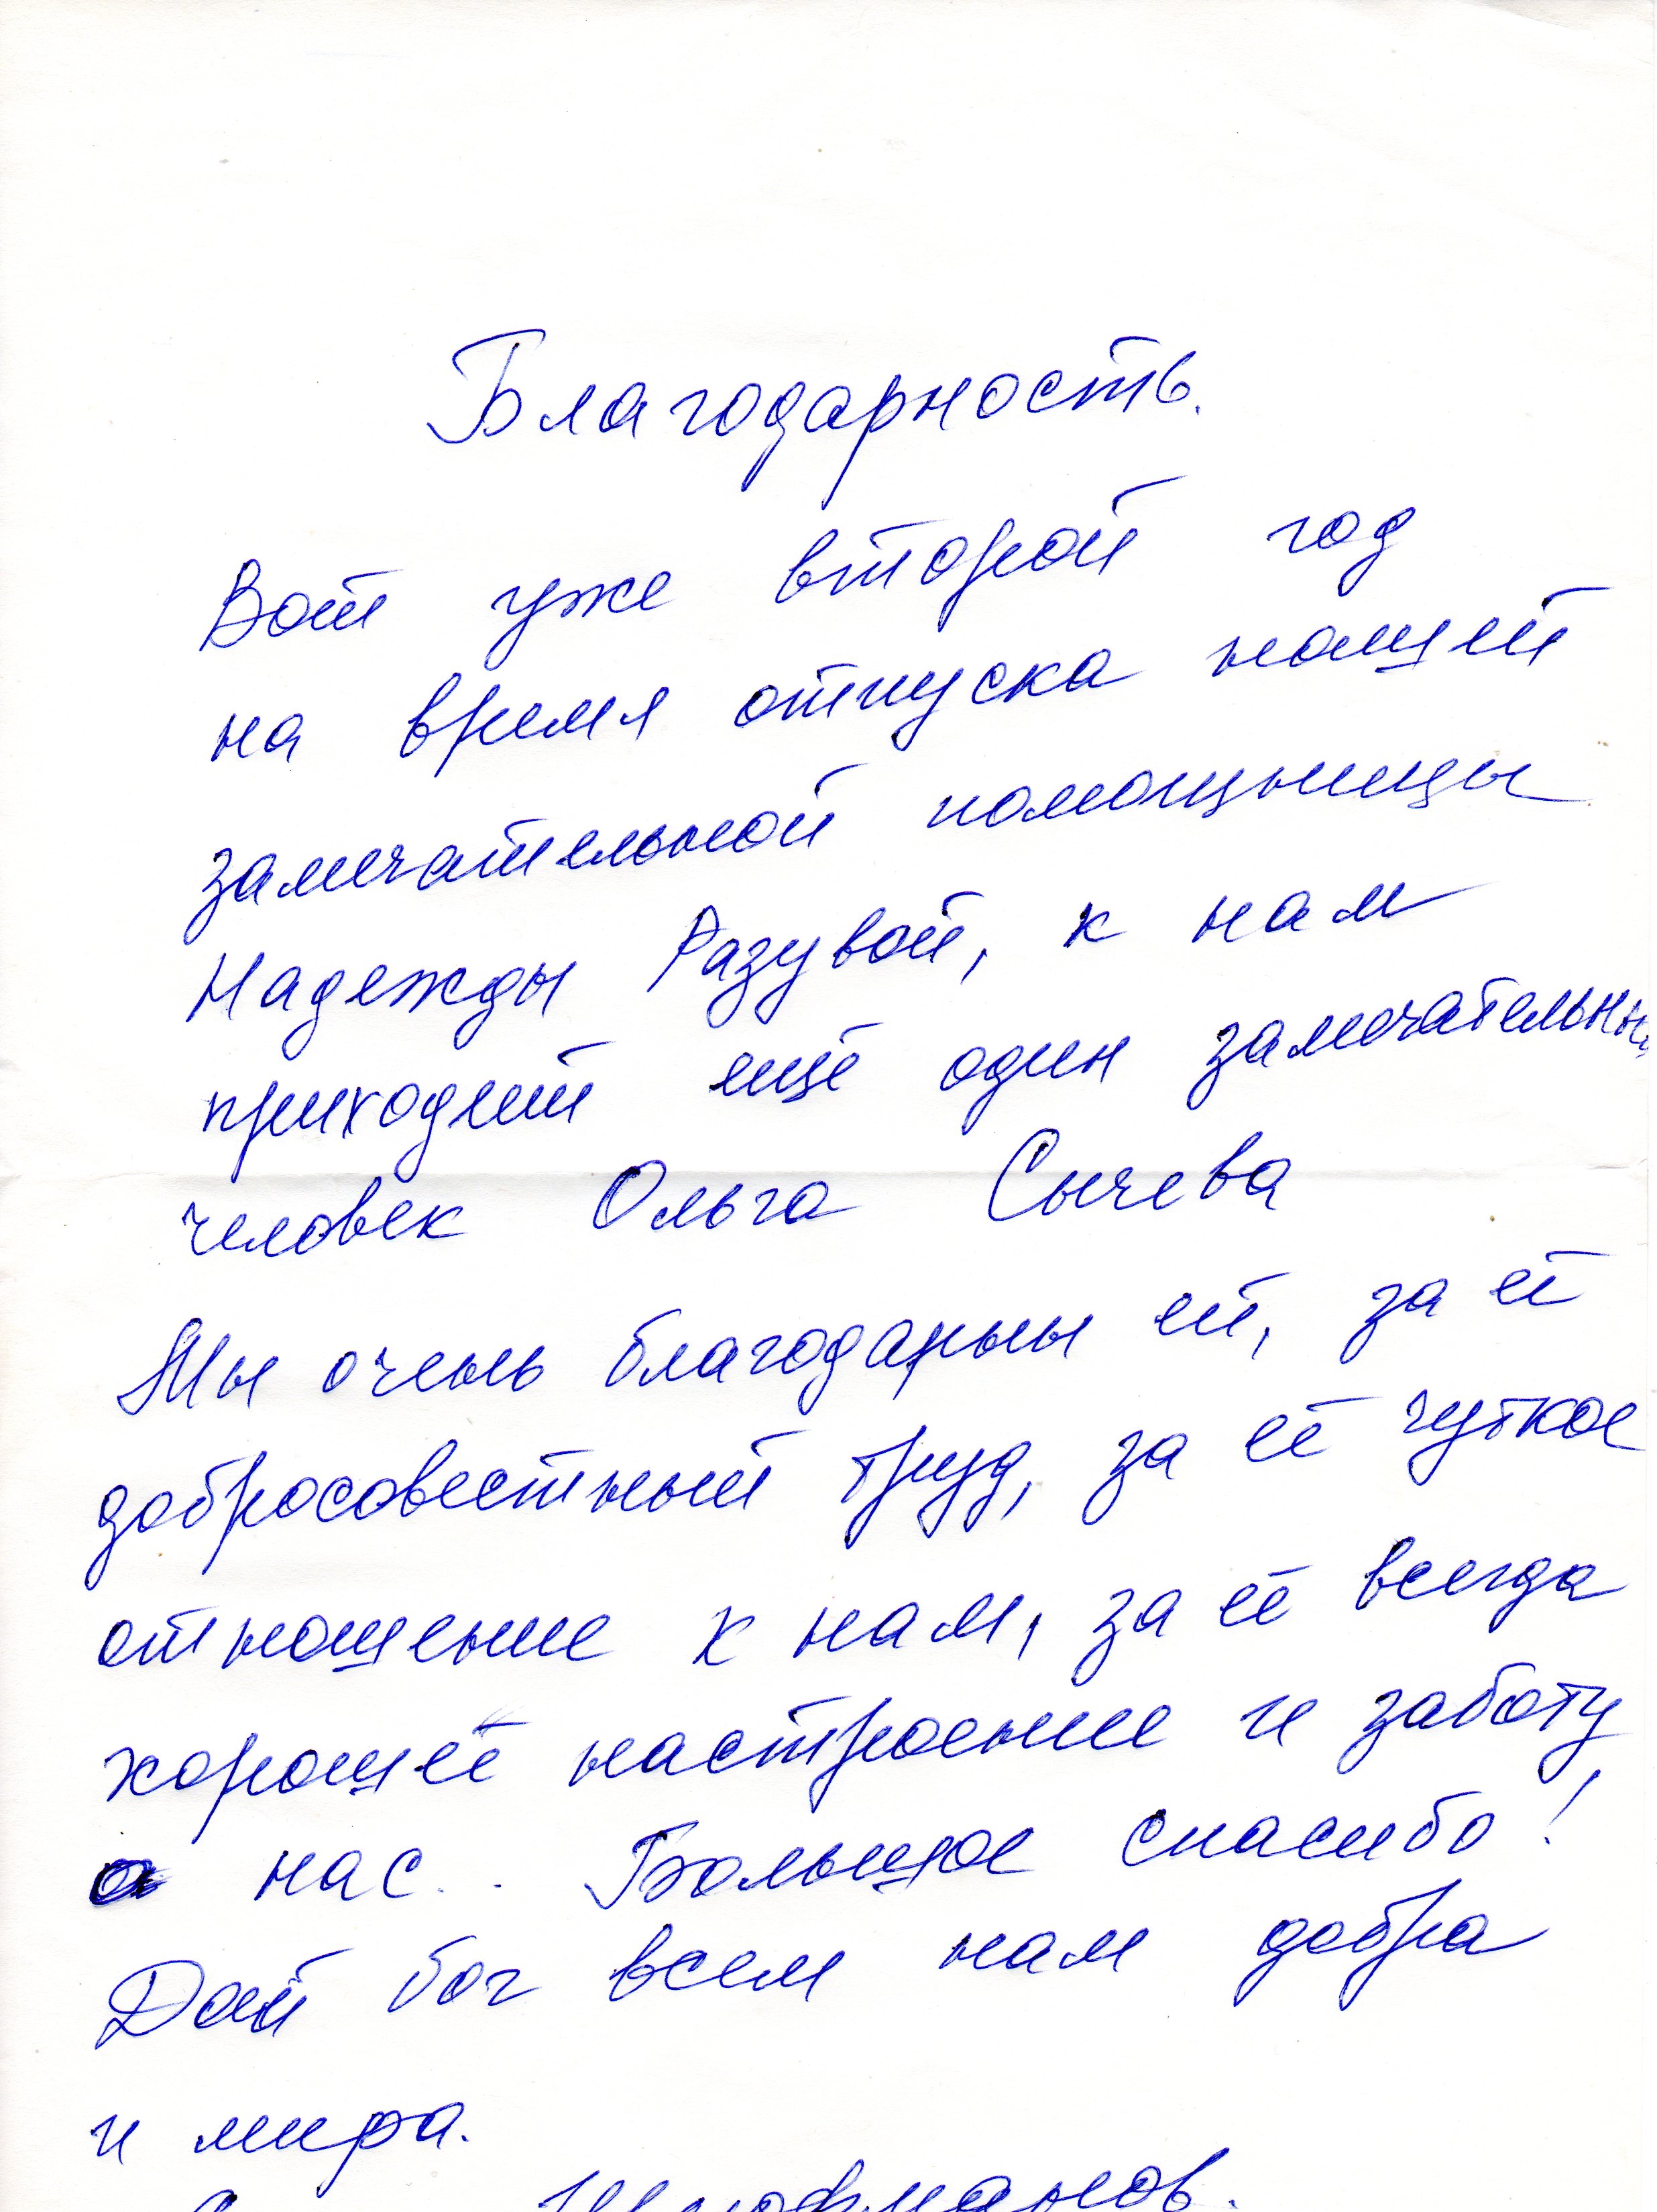 Благодарность.
Вот уже второй год
на время отпуска нашей
замечательной помощницы
Надежды Разувой, к нам
приходит ещё один замечательны
человек Ольга Сычева
Мы очень благодарны ей, за её
добросовестный труд, за её чуткое
отношение к нам, за её всегда
хорошее настроение и заботу
о нас.. Большое спасибо!
Дай бог всем нам добра
и мира.